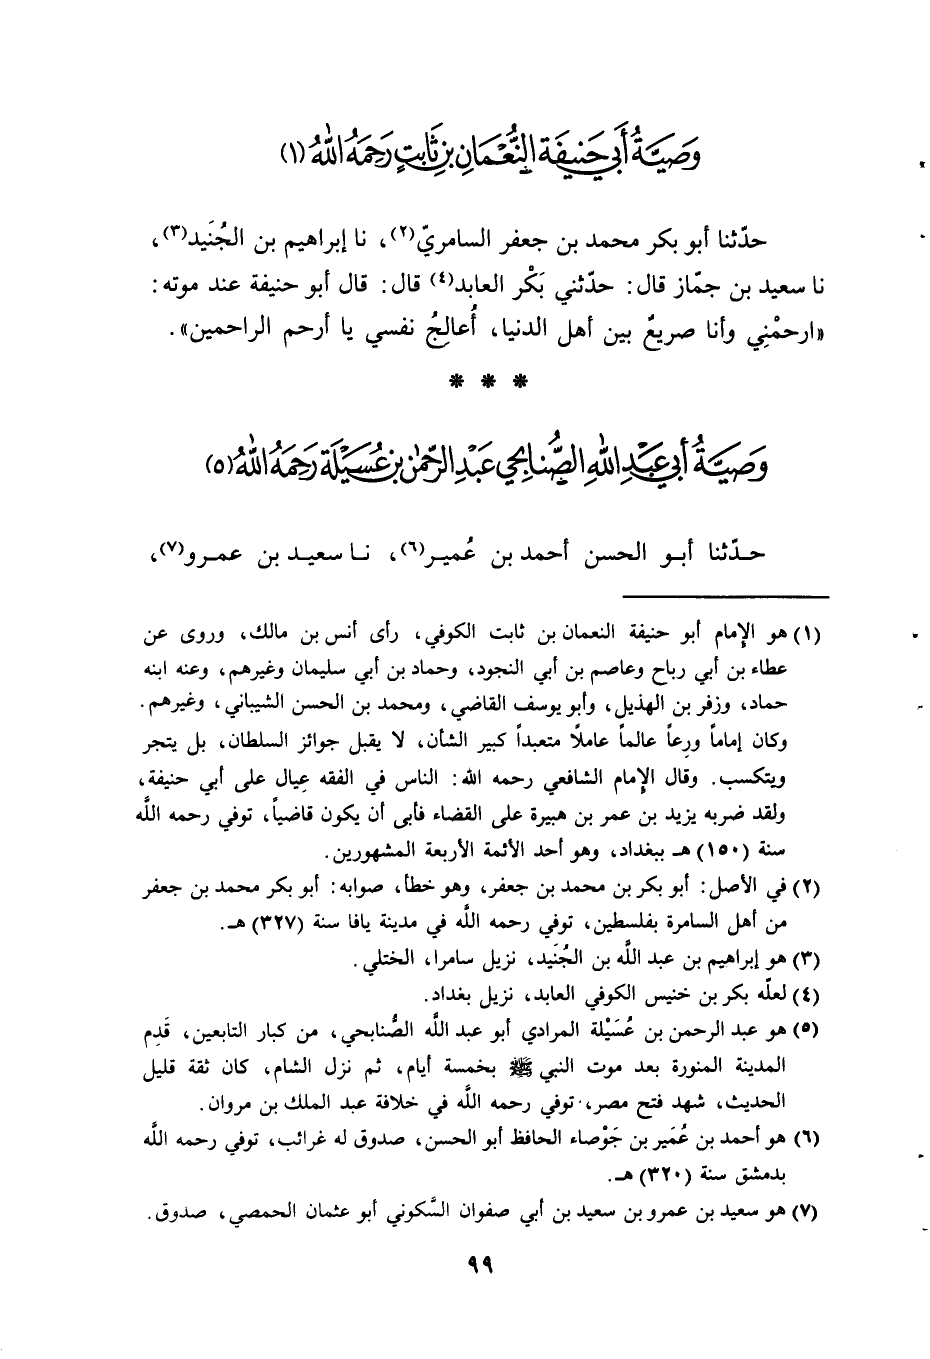 وَصِيَّةُ أَبي حَنيفَة النُّعْمَانِ بنِ ثَابتٍ رَحِمَهُ اللهُ (١)
حدّثنا أبو بكر محمد بن جعفر السامريّ(٢)، نا إبراهيم بن الجُنَيد(٣)،
نا سعيد بن جمّاز قال: حدّثني بَكْر العابد(٤) قال: قال أبو حنيفة عند موته:
«ارحمْنِي وأنا صريعٌ بين أهل الدنيا، أُعالِجُ نفسي يا أرحم الراحمين».
* * *
وَصِيَّةُ أَبي عَبْدِ اللهِ الصُّنابِحِي عَبْدِ الرَّحْمٰن بن عُسَيْلَة رَحِمَهُ اللهُ (٥)
حـدّثنا أبـو الحسن أحمد بن عُميـر(٦)، نـا سعيـد بن عمـرو(٧)،
(١) هو الإمام أبو حنيفة النعمان بن ثابت الكوفي، رأى أنس بن مالك، وروى عن
عطاء بن أبي رباح وعاصم بن أبي النجود، وحماد بن أبي سليمان وغيرهم، وعنه ابنه
حماد، وزفر بن الهذيل، وأبو يوسف القاضي، ومحمد بن الحسن الشيباني، وغيرهم.
وكان إماماً ورِعاً عالماً عاملًا متعبداً كبير الشأن، لا يقبل جوائز السلطان، بل يتجر
ويتكسب. وقال الإمام الشافعي رحمه الله: الناس في الفقه عِيال على أبي حنيفة،
ولقد ضربه يزيد بن عمر بن هبيرة على القضاء فأبى أن يكون قاضياً، توفي رحمه اللَّه
سنة (١٥٠) هـ ببغداد، وهو أحد الأئمة الأربعة المشهورين.
(٢) في الأصل: أبو بكر بن محمد بن جعفر، وهو خطأ، صوابه: أبو بكر محمد بن جعفر
من أهل السامرة بفلسطين، توفي رحمه اللَّه في مدينة يافا سنة (٣٢٧) هـ.
(٣) هو إبراهيم بن عبد اللَّه بن الجُنَيد، نزيل سامرا، الختلي.
(٤) لعلّه بكر بن خنيس الكوفي العابد، نزيل بغداد.
(٥) هو عبد الرحمن بن عُسَيْلة المرادي أبو عبد اللَّه الصُّنابحي، من كبار التابعين، قَدِم
المدينة المنورة بعد موت النبي ﷺ بخمسة أيام، ثم نزل الشام، كان ثقة قليل
الحديث، شهد فتح مصر، توفي رحمه اللَّه في خلافة عبد الملك بن مروان.
(٦) هو أحمد بن عُمَير بن جَوْصاء الحافظ أبو الحسن، صدوق له غرائب، توفي رحمه اللَّه
بدمشق سنة (٣٢٠) هـ.
(٧) هو سعيد بن عمرو بن سعيد بن أبي صفوان السَّكوني أبو عثمان الحمصي، صدوق.
٩٩